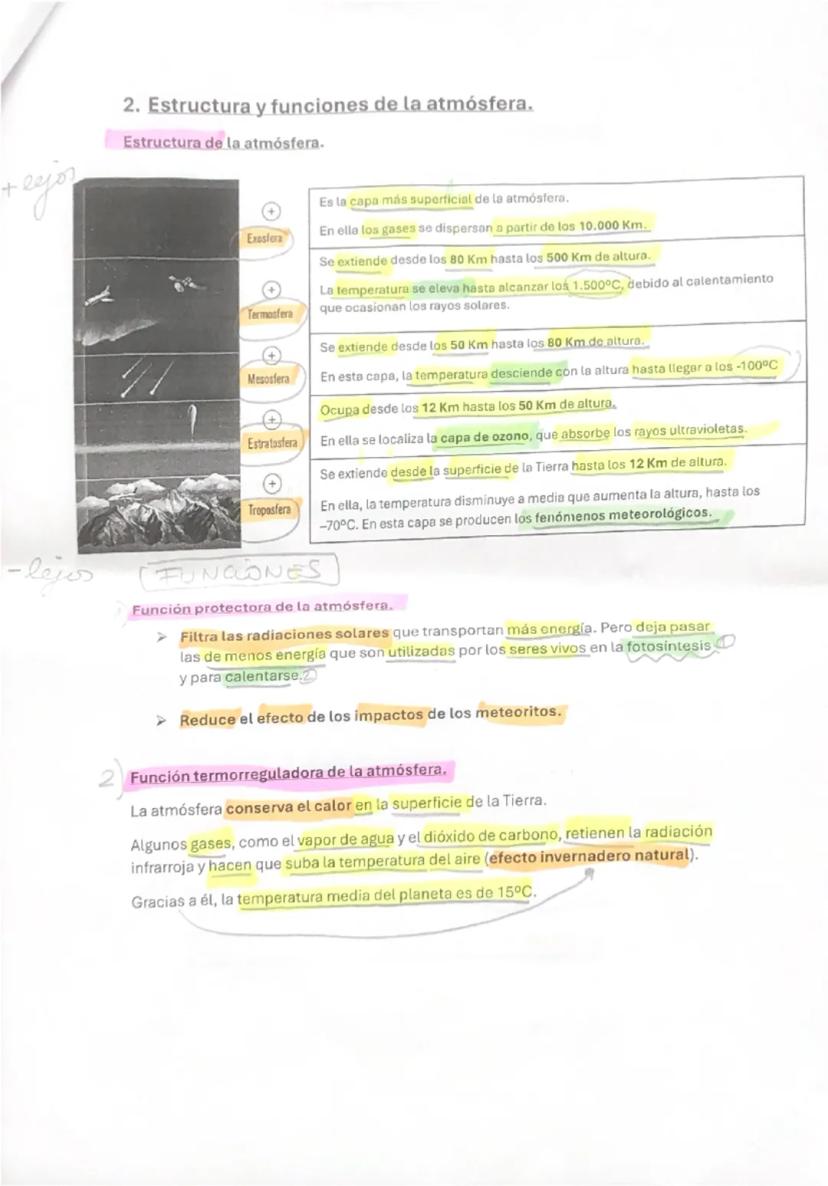 2. Estructura y funciones de la atmósfera.
Estructura de la atmósfera.
+ lejos
Exosfera
Es la capa más superficial de la atmósfera.
En ella los gases se dispersan a partir de los 10.000 Km.
Termosfera
Se extiende desde los 80 Km hasta los 500 Km de altura.
La temperatura se eleva hasta alcanzar los 1.500ºC, debido al calentamiento
que ocasionan los rayos solares.
Mesosfera
Se extiende desde los 50 Km hasta los 80 Km de altura.
En esta capa, la temperatura desciende con la altura hasta llegar a los -100ºC
Estratosfera
Ocupa desde los 12 Km hasta los 50 Km de altura.
En ella se localiza la capa de ozono, que absorbe los rayos ultravioletas.
Troposfera
Se extiende desde la superficie de la Tierra hasta los 12 Km de altura.
En ella, la temperatura disminuye a media que aumenta la altura, hasta los
–70ºC. En esta capa se producen los fenómenos meteorológicos.
- lejos
FUNCIONES
Función protectora de la atmósfera.
➢ Filtra las radiaciones solares que transportan más energía. Pero deja pasar
las de menos energía que son utilizadas por los seres vivos en la fotosíntesis ①
y para calentarse. ②
➢ Reduce el efecto de los impactos de los meteoritos.
2) Función termorreguladora de la atmósfera.
La atmósfera conserva el calor en la superficie de la Tierra.
Algunos gases, como el vapor de agua y el dióxido de carbono, retienen la radiación
infrarroja y hacen que suba la temperatura del aire (efecto invernadero natural).
Gracias a él, la temperatura media del planeta es de 15ºC.